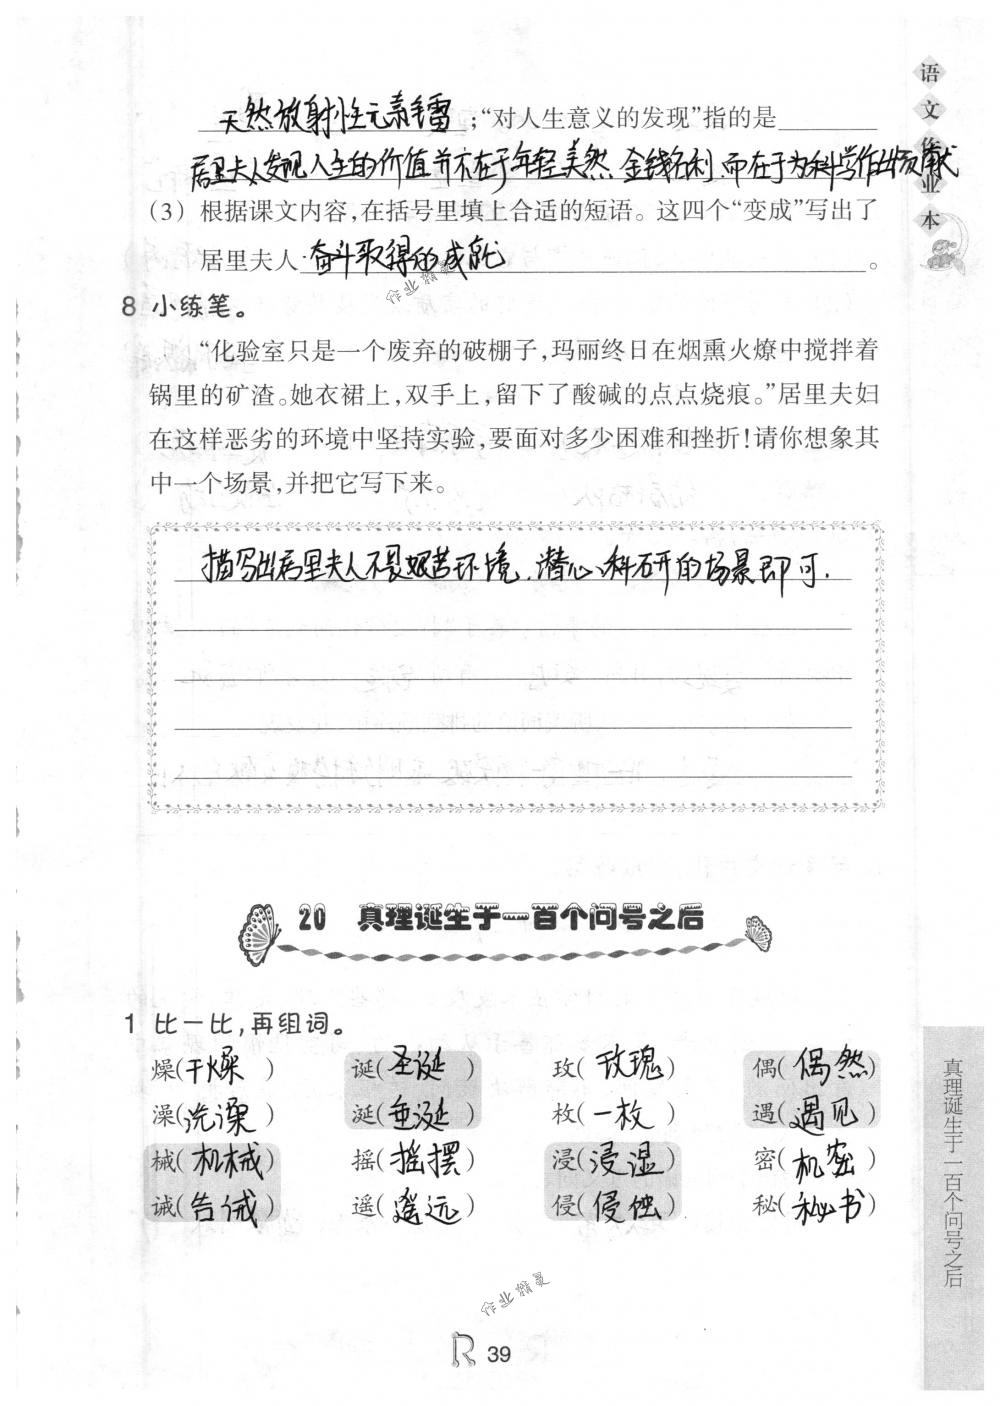 语文作业本
天然放射性元素镭;“对人生意义的发现”指的是
居里夫人发现人生的价值并不在于年轻美然 金钱名利,而在于为科学作出贡献
(3) 根据课文内容,在括号里填上合适的短语。这四个“变成”写出了
居里夫人 奋斗取得的成就。
8 小练笔。
“化验室只是一个废弃的破棚子,玛丽终日在烟熏火燎中搅拌着
锅里的矿渣。她衣裙上,双手上,留下了酸碱的点点烧痕。”居里夫妇
在这样恶劣的环境中坚持实验,要面对多少困难和挫折!请你想象其
中一个场景,并把它写下来。
描写出居里夫人不畏艰苦环境,潜心科研的场景即可.
20 真理诞生于一百个问号之后
1 比一比,再组词。
燥(干燥) 诞(圣诞) 玫(玫瑰) 偶(偶然)
澡(洗澡) 涎(垂涎) 枚(一枚) 遇(遇见)
械(机械) 摇(摇摆) 浸(浸湿) 密(机密)
诫(告诫) 遥(遥远) 侵(侵蚀) 秘(秘书)
真理诞生于一百个问号之后
作业精灵
作业精灵
R 39